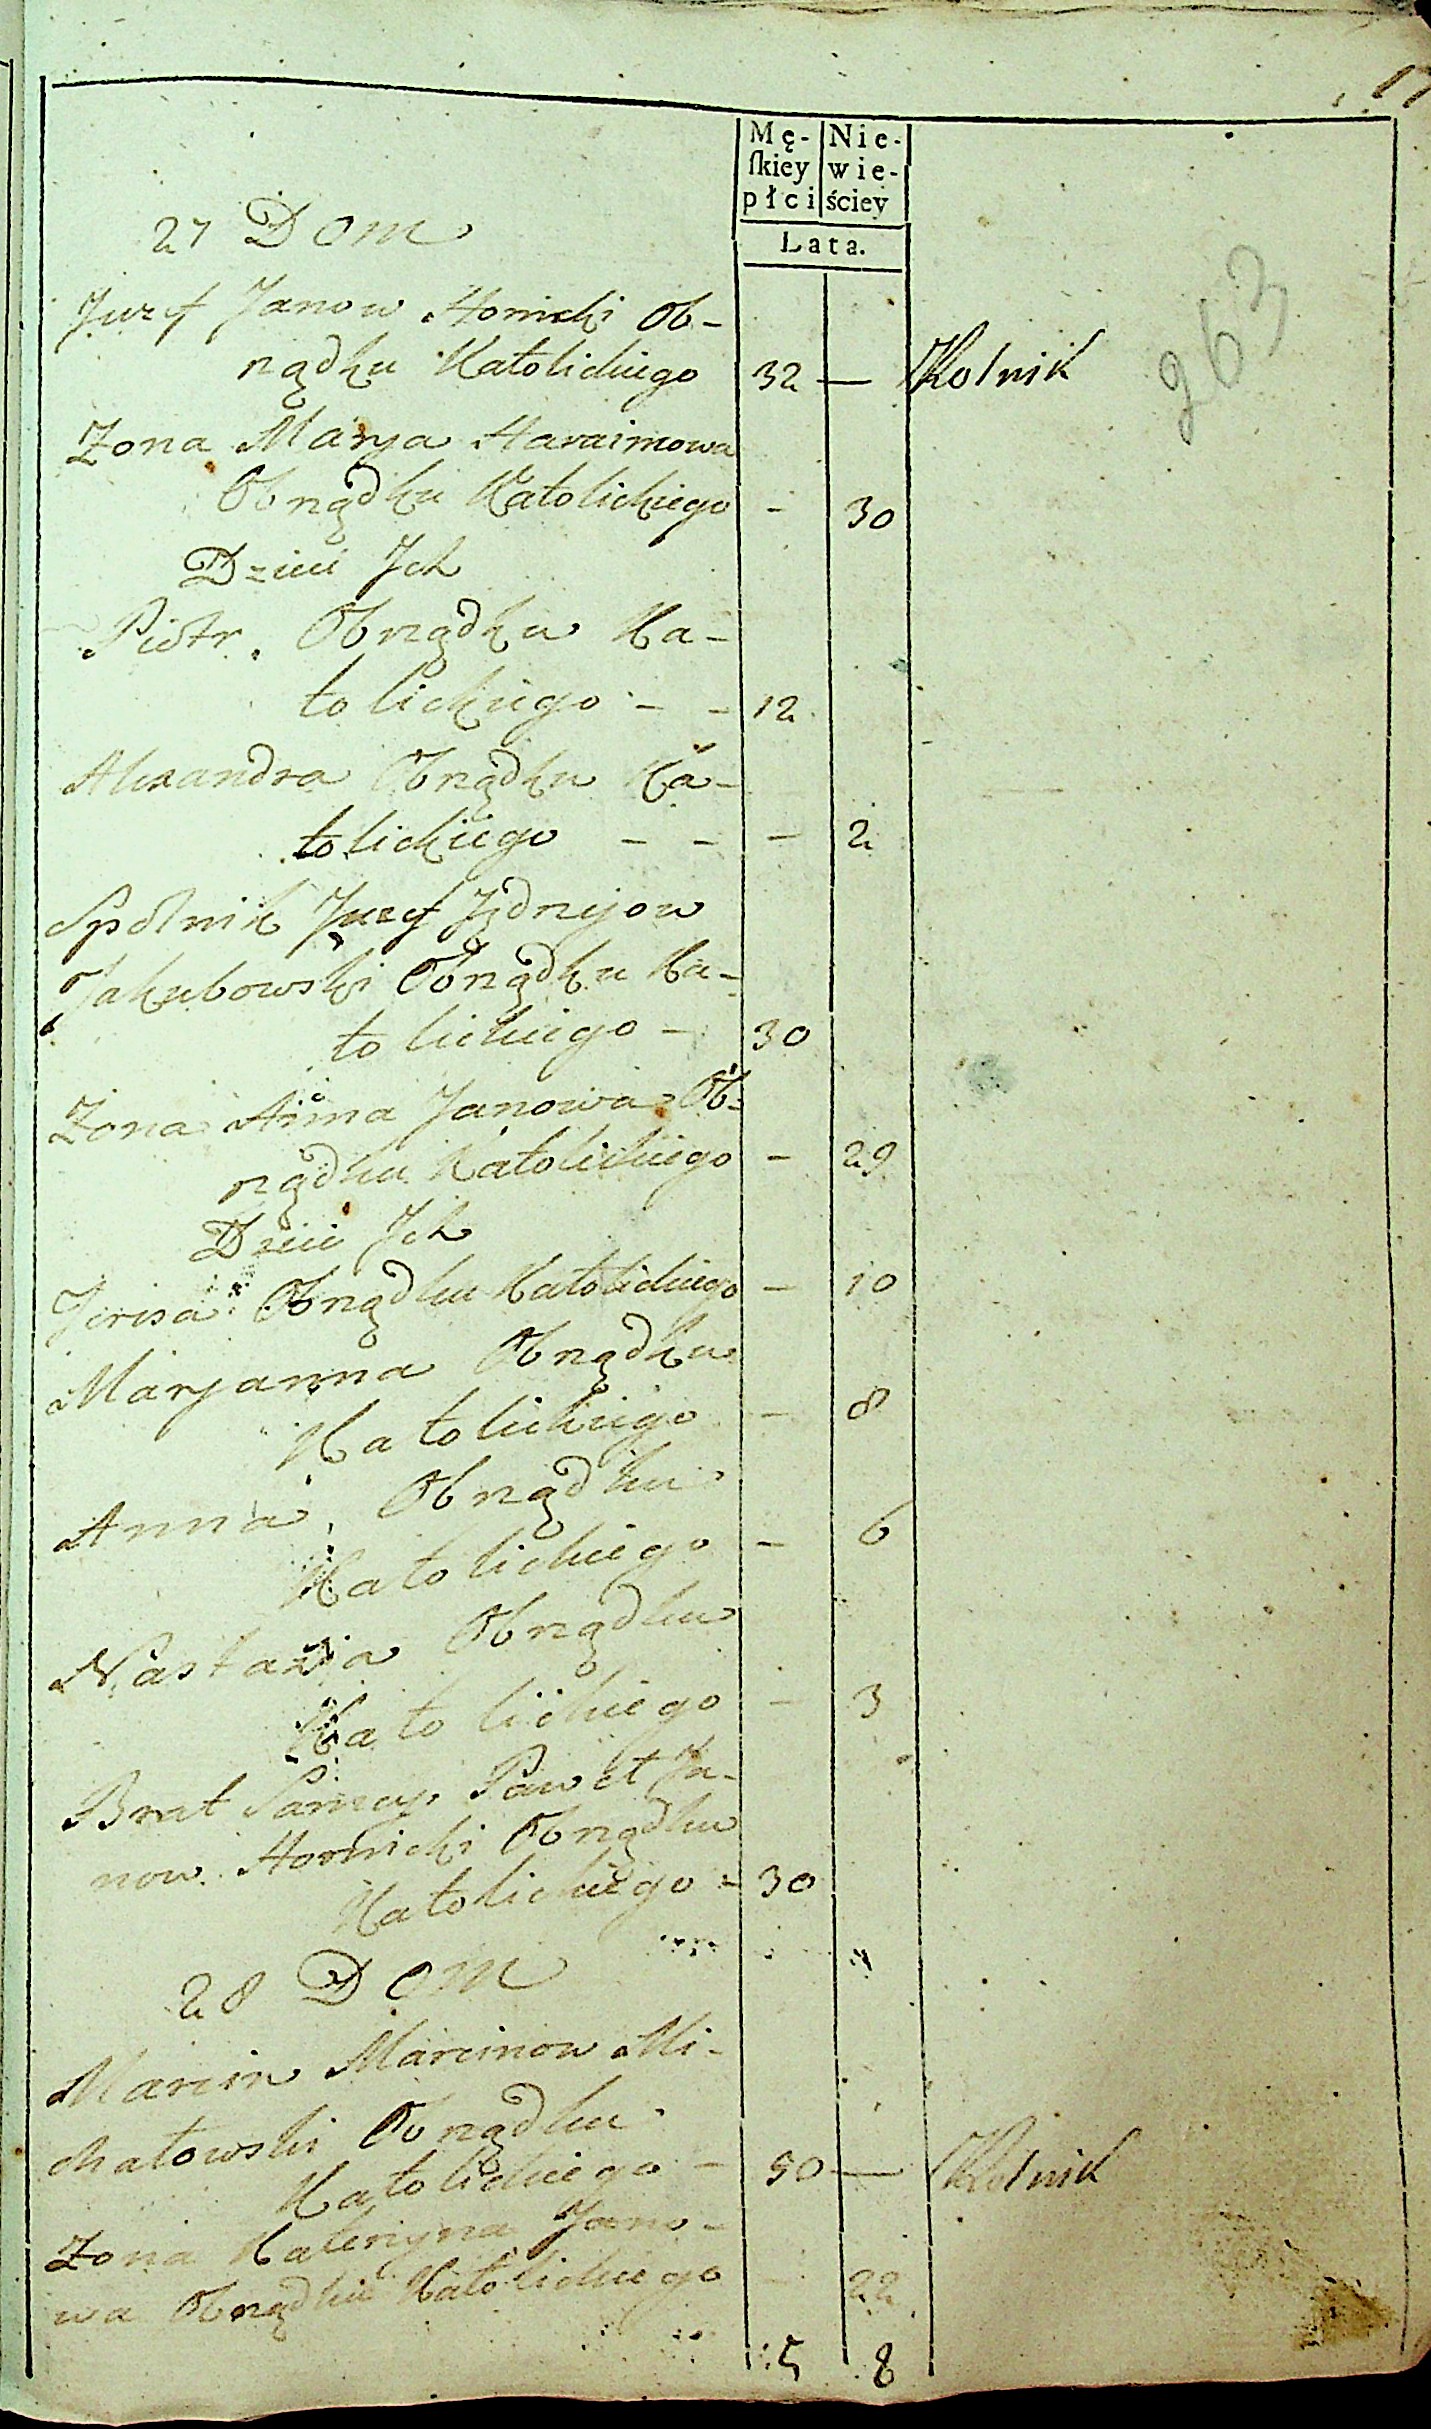 17
Mę- Nie-
ſkiey wie-
płci ściey
Lata.
263
27 Dom
Juzef Janow Hornicki Ob-
rządku Katolickiego 32 — Rolnik
Zona Marya Haraimowa
Obrządku Katolickiego - 30
Dzieci Ich
Piotr Obrządku Ka-
tolickiego - - 12
Alexandra Obrządku Ka-
tolickiego - - - 2
Spólnik Juzef Jędrzejow
Jakubowski Obrządku Ka-
tolickiego - 30
Zona Anna Janowa Ob-
rządku Katolickiego - 29
Dzieci Ich
Teresa Obrządku Katolickiego - 10
Maryanna Obrządku
Katolickiego - 8
Anna Obrządku
Katolickiego - 6
Nastazia Obrządku
Katolickiego - 3
Brat Paweł Ja-
now Hornicki Obrządku
Katolickiego - 30
28 Dom
Marcin Marcinow Mi-
chałowski Obrządku
Katolickiego - 50 — Rolnik
Zona Kateryna Jano-
wa Obrządku Katolickiego - 22
5 8